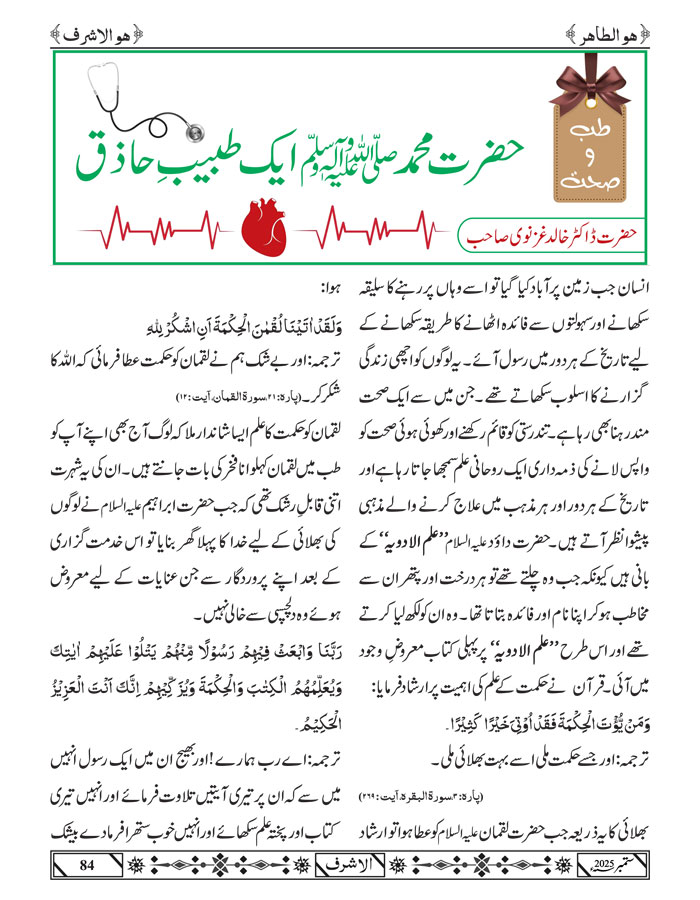 هوالطاهر
هوالاشرف
طب
و
صحت
حضرت محمد صلی اللہ علیہ وآلہ وسلم ایک طبیبِ حاذق
حضرت ڈاکٹر خالد غزنوی صاحب
انسان جب زمین پر آباد کیا گیا تو اسے وہاں پر رہنے کا سلیقہ
سکھانے اور سہولتوں سے فائدہ اٹھانے کا طریقہ سکھانے کے
لیے تاریخ کے ہر دور میں رسول آئے۔ یہ لوگوں کو اچھی زندگی
گزارنے کا اسلوب سکھاتے تھے۔ جن میں سے ایک صحت
مند رہنا بھی رہا ہے۔ تندرستی کو قائم رکھنے اور کھوئی ہوئی صحت کو
واپس لانے کی ذمہ داری ایک روحانی علم سمجھا جاتا رہا ہے اور
تاریخ کے ہر دور اور ہر مذہب میں علاج کرنے والے مذہبی
پیشوا نظر آتے ہیں۔ حضرت داؤد علیہ السلام ”علم الادویہ“ کے
بانی ہیں کیونکہ جب وہ چلتے تھے تو ہر درخت اور پتھر ان سے
مخاطب ہو کر اپنا نام اور فائدہ بتاتا تھا۔ وہ ان کو لکھ لیا کرتے
تھے اور اس طرح ”علم الادویہ“ پر پہلی کتاب معروضِ وجود
میں آئی۔ قرآن نے حکمت کے علم کی اہمیت پر ارشاد فرمایا:
وَمَنْ يُّؤْتَ الْحِكْمَةَ فَقَدْ اُوْتِیَ خَيْرًا كَثِيْرًا۔
ترجمہ: اور جسے حکمت ملی اسے بہت بھلائی ملی۔
(پارہ: ۳، سورۃ البقرہ، آیت: ۲۶۹)
بھلائی کا یہ ذریعہ جب حضرت لقمان علیہ السلام کو عطا ہوا تو ارشاد
ہوا:
وَلَقَدْ اٰتَيْنَا لُقْمٰنَ الْحِكْمَةَ اَنِ اشْكُرْ لِلّٰهِ
ترجمہ: اور بے شک ہم نے لقمان کو حکمت عطا فرمائی کہ اللہ کا
شکر کر۔ (پارہ: ۲۱، سورۃ القمان، آیت: ۱۲)
لقمان کو حکمت کا علم ایسا شاندار ملا کہ لوگ آج بھی اپنے آپ کو
طب میں لقمان کہلوانا فخر کی بات جانتے ہیں۔ ان کی یہ شہرت
اتنی قابلِ رشک تھی کہ جب حضرت ابراہیم علیہ السلام نے لوگوں
کی بھلائی کے لیے خدا کا پہلا گھر بنایا تو اس خدمت گزاری
کے بعد اپنے پروردگار سے جن عنایات کے لیے معروض
ہوئے وہ دلچسپی سے خالی نہیں۔
رَبَّنَا وَابْعَثْ فِيْهِمْ رَسُوْلًا مِّنْهُمْ يَتْلُوْا عَلَيْهِمْ اٰيٰتِكَ
وَيُعَلِّمُهُمُ الْكِتٰبَ وَالْحِكْمَةَ وَيُزَكِّيْهِمْ اِنَّكَ اَنْتَ الْعَزِيْزُ
الْحَكِيْمُ۔
ترجمہ: اے رب ہمارے! اور بھیج ان میں ایک رسول انہیں
میں سے کہ ان پر تیری آیتیں تلاوت فرمائے اور انہیں تیری
کتاب اور پختہ علم سکھائے اور انہیں خوب ستھرا فرمادے بیشک
ستمبر 2025ء
الاشرف
84